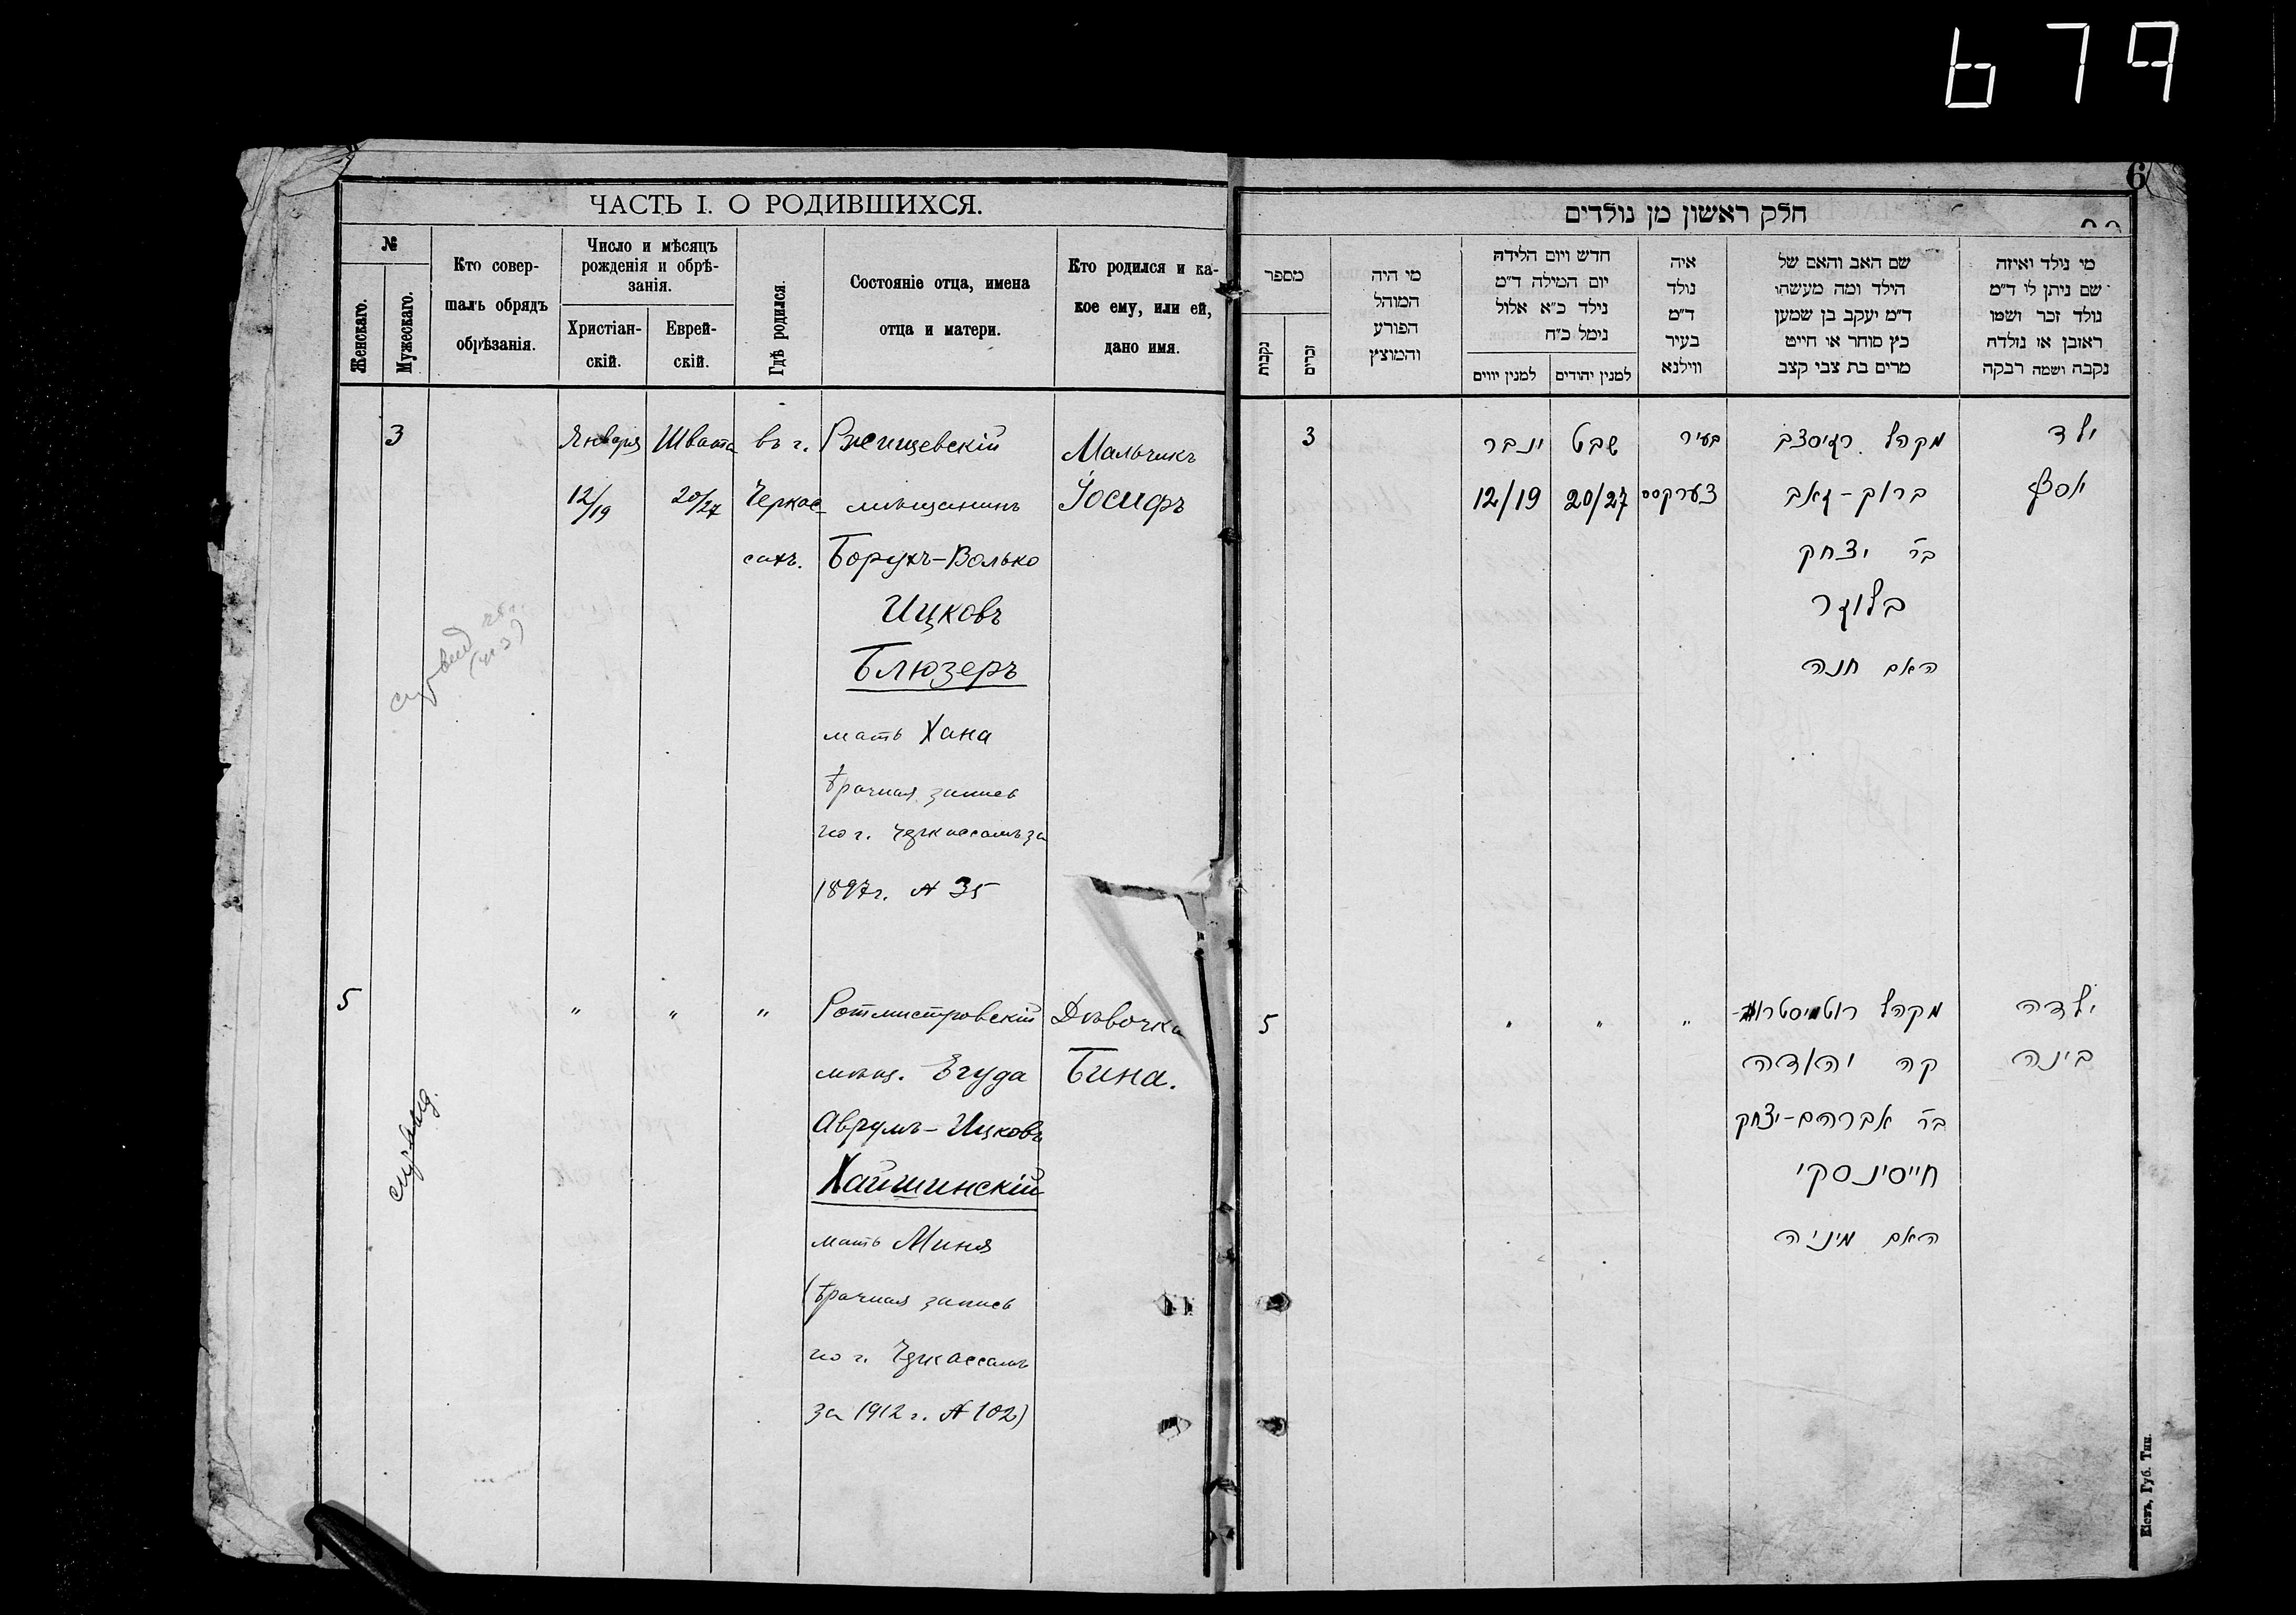 679
6
ЧАСТЬ I. О РОДИВШИХСЯ.
№
Женскаго.
Мужескаго.
Кто совер-
шалъ обрядъ
обрѣзанія.
Число и мѣсяцъ
рожденія и обрѣ-
занія.
Христіан-
скій.
Еврей-
скій.
Гдѣ родился.
Состояніе отца, имена
отца и матери.
Кто родился и ка-
кое ему, или ей,
дано имя.
3
Января
12/19
Швата
20/27
въ г.
Черкас-
сахъ.
Ржищевскій
мѣщанинъ
Борухъ-Волько
Ицковъ
Блюзеръ
мать Хана
Брачная запись
по г. Черкассамъ за
1897 г. № 35
Мальчикъ
Іосифъ
5
"
"
"
Ротмистровскій
мѣщ. Егуда
Аврумъ-Ицковъ
Хайшинскій
мать Миня
(Брачная запись
по г. Черкассамъ
за 1912 г. № 102)
Дѣвочка
Бина.
חלק ראשון מן נולדים
מי נולד ואיזה
שם ניתן לי ד"מ
נולד זכר ושמו
ראובן או נולדה
נקבה ושמה רבקה
שם האב והאם של
הילד ומה מעשהו
ד"מ יעקב בן שמעון
כץ סוחר או חייט
מרים בת צבי קצב
איה
נולד
ד"מ
בעיר
ווילנא
חדש ויום הלידה
יום המילה ד"מ
נולד כ"א אלול
נימל כ"ח
למנין יהודים
למנין יווים
מי היה
המוהל
הפורע
והמוצץ
מספר
זכרים
נקבות
ילד
יוסף
מקהל
ברוך-זאב
בר יצחק
בלוזר
האם חנה
בעיר
צערקסס
שבט
20/27
ינבר
12/19
3
ילדה
בינה
מקהל רוטמיסטרוו-
קה יהודה
בר אברהם-יצחק
חייסינסקי
האם מיניה
"
"
"
5
Кіевъ, Губ. Тип.